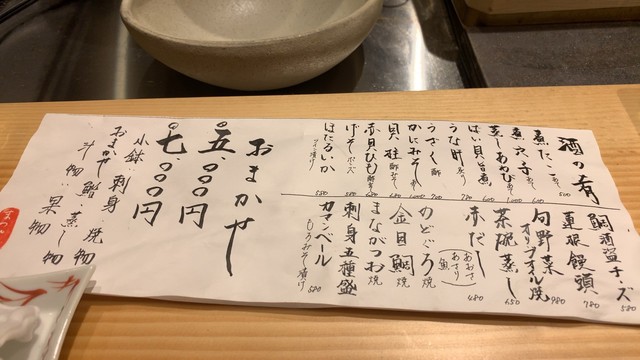 酒の肴
煮だこ
煮穴子
蒸しあわび
ばい貝旨煮
うな肝
うざく 酢
かにみそ
貝柱 酢みそ
赤貝ひも
げそ ポン
ほたるいか
鯛酒盗チーズ 580
蓮根饅頭 780
旬野菜オリーブオイル焼 980
茶碗蒸し 650
赤だし (あおさ あさり 魚) 480
のどぐろ焼
金目鯛 焼
まながつお 焼
刺身五種盛
カマンベールもろみそ漬け 580
おまかせ
五.000円
七.000円
小鉢 刺身 焼物
おまかせ 鮨 蒸し物
汁物 果物